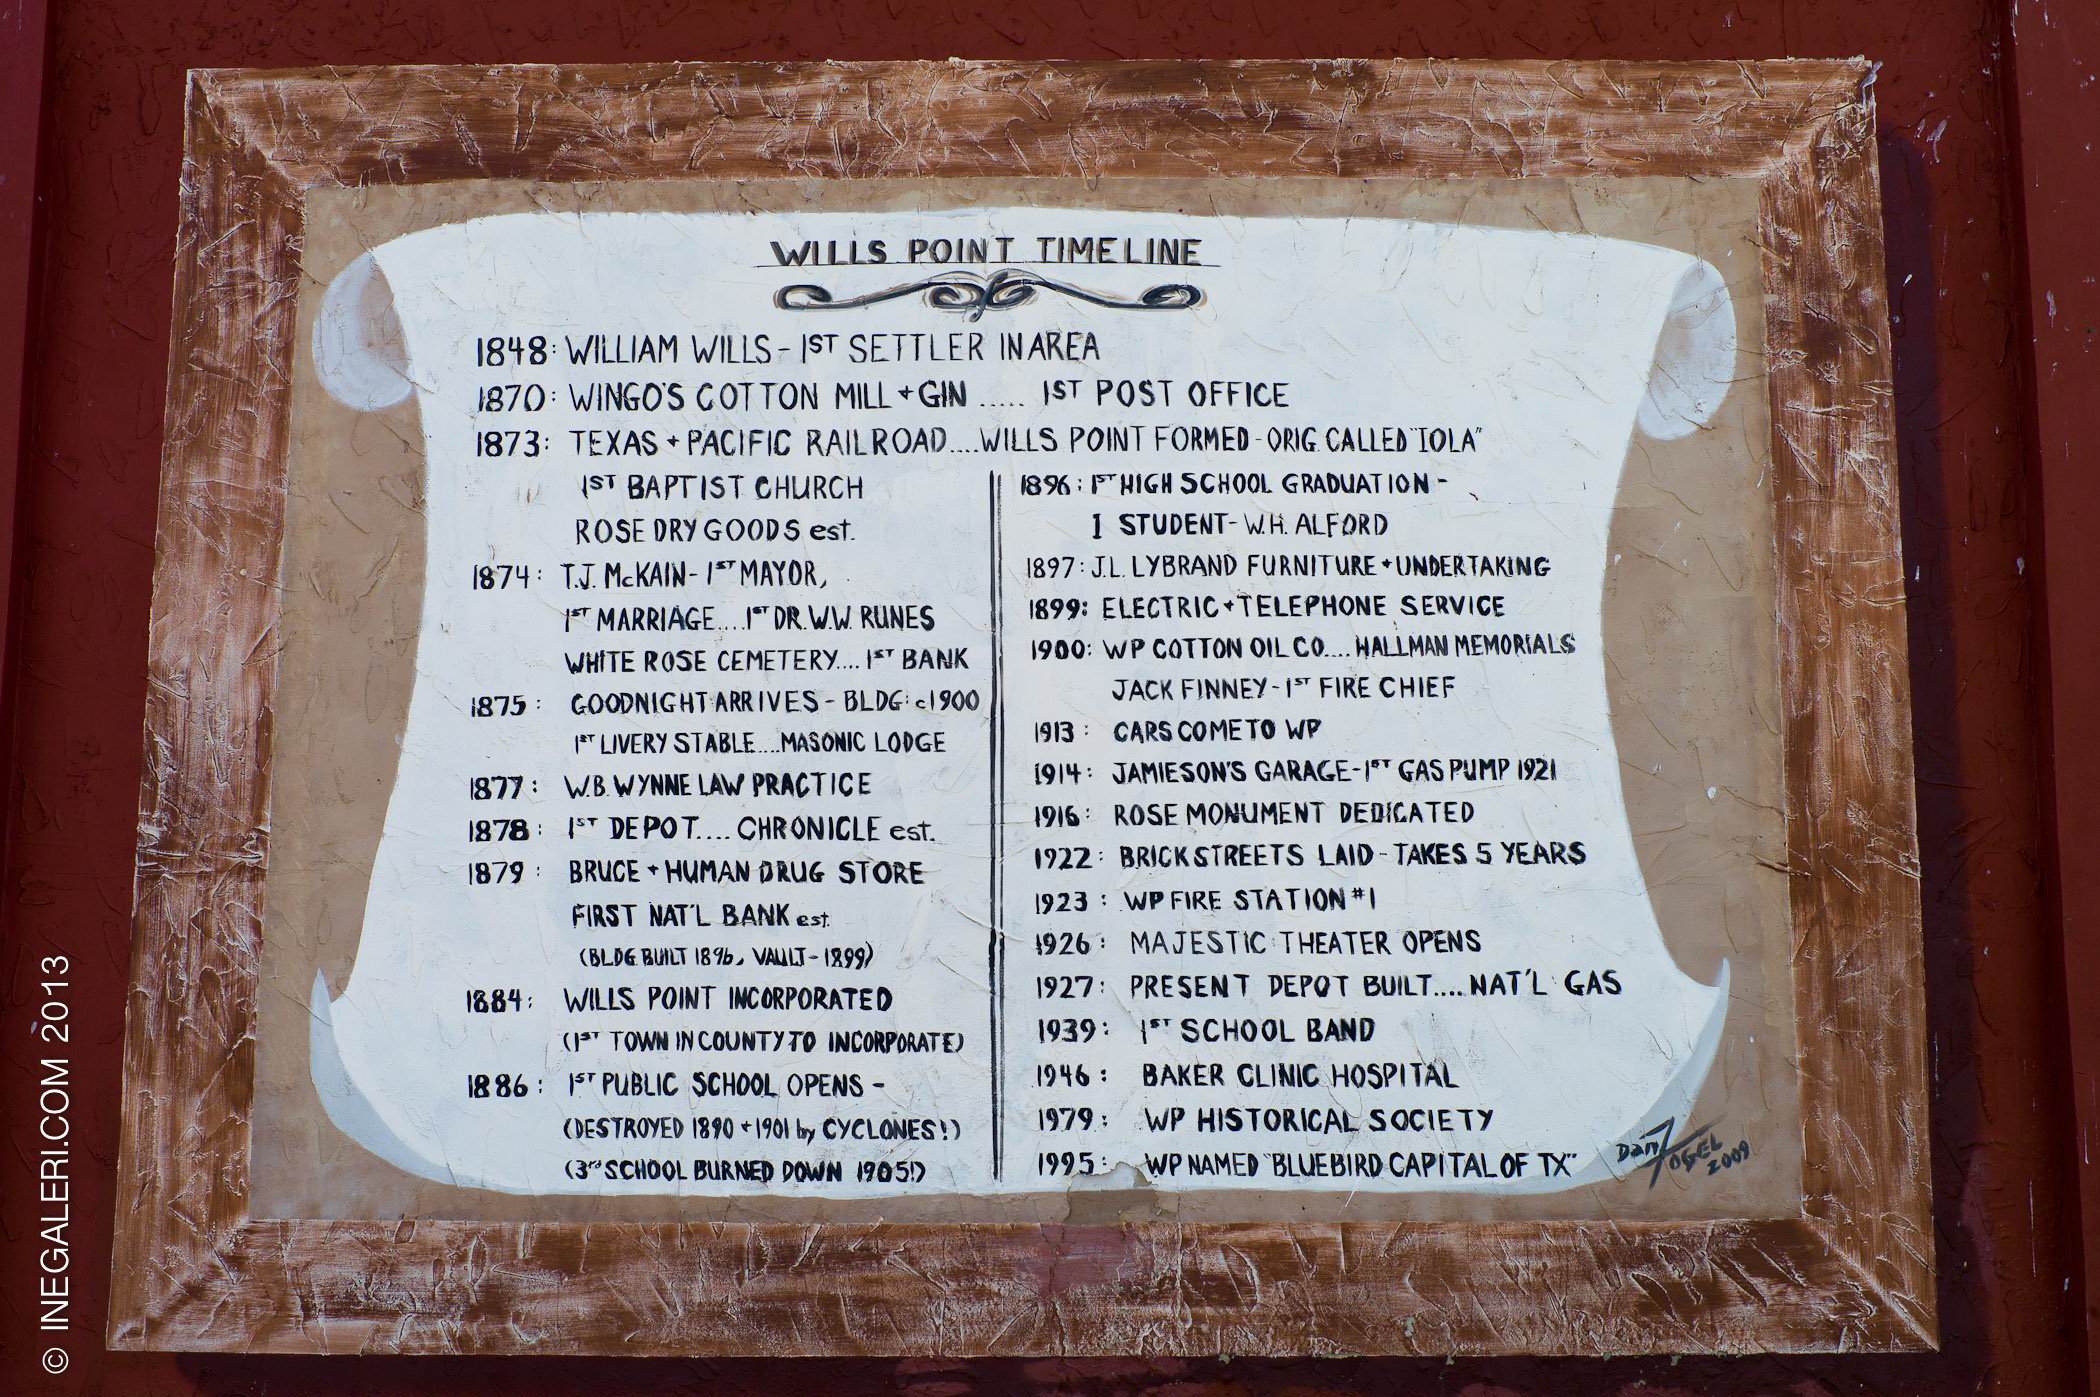 WILLS POINT TIMELINE
1848: WILLIAM WILLS - 1ST SETTLER IN AREA
1870: WINGO'S COTTON MILL + GIN ..... 1ST POST OFFICE
1873: TEXAS + PACIFIC RAILROAD....WILLS POINT FORMED - ORIG. CALLED "IOLA"
1ST BAPTIST CHURCH
ROSE DRY GOODS est.
1874: T.J. McKAIN - 1ST MAYOR,
1ST MARRIAGE....1ST DR. W.W. RUNES
WHITE ROSE CEMETERY.... 1ST BANK
1875: GOODNIGHT ARRIVES - BLDG: c1900
1ST LIVERY STABLE....MASONIC LODGE
1877: W.B. WYNNE LAW PRACTICE
1878: 1ST DEPOT.... CHRONICLE est.
1879: BRUCE + HUMAN DRUG STORE
FIRST NAT'L BANK est.
(BLDG. BUILT 1896, VAULT - 1899)
1884: WILLS POINT INCORPORATED
(1ST TOWN IN COUNTY TO INCORPORATE)
1886: 1ST PUBLIC SCHOOL OPENS -
(DESTROYED 1890 + 1901 by CYCLONES!)
(3rd SCHOOL BURNED DOWN 1905!)
1896: 1ST HIGH SCHOOL GRADUATION -
1 STUDENT - W.H. ALFORD
1897: J.L. LYBRAND FURNITURE + UNDERTAKING
1899: ELECTRIC + TELEPHONE SERVICE
1900: WP COTTON OIL CO.... HALLMAN MEMORIALS
JACK FINNEY - 1ST FIRE CHIEF
1913: CARS COME TO WP
1914: JAMIESON'S GARAGE - 1ST GAS PUMP 1921
1916: ROSE MONUMENT DEDICATED
1922: BRICK STREETS LAID - TAKES 5 YEARS
1923: WP FIRE STATION #1
1926: MAJESTIC THEATER OPENS
1927: PRESENT DEPOT BUILT.... NAT'L GAS
1939: 1ST SCHOOL BAND
1946: BAKER CLINIC HOSPITAL
1979: WP HISTORICAL SOCIETY
1995: WP NAMED "BLUEBIRD CAPITAL OF TX"
Dan FOGEL
2009
© INEGALERI.COM 2013